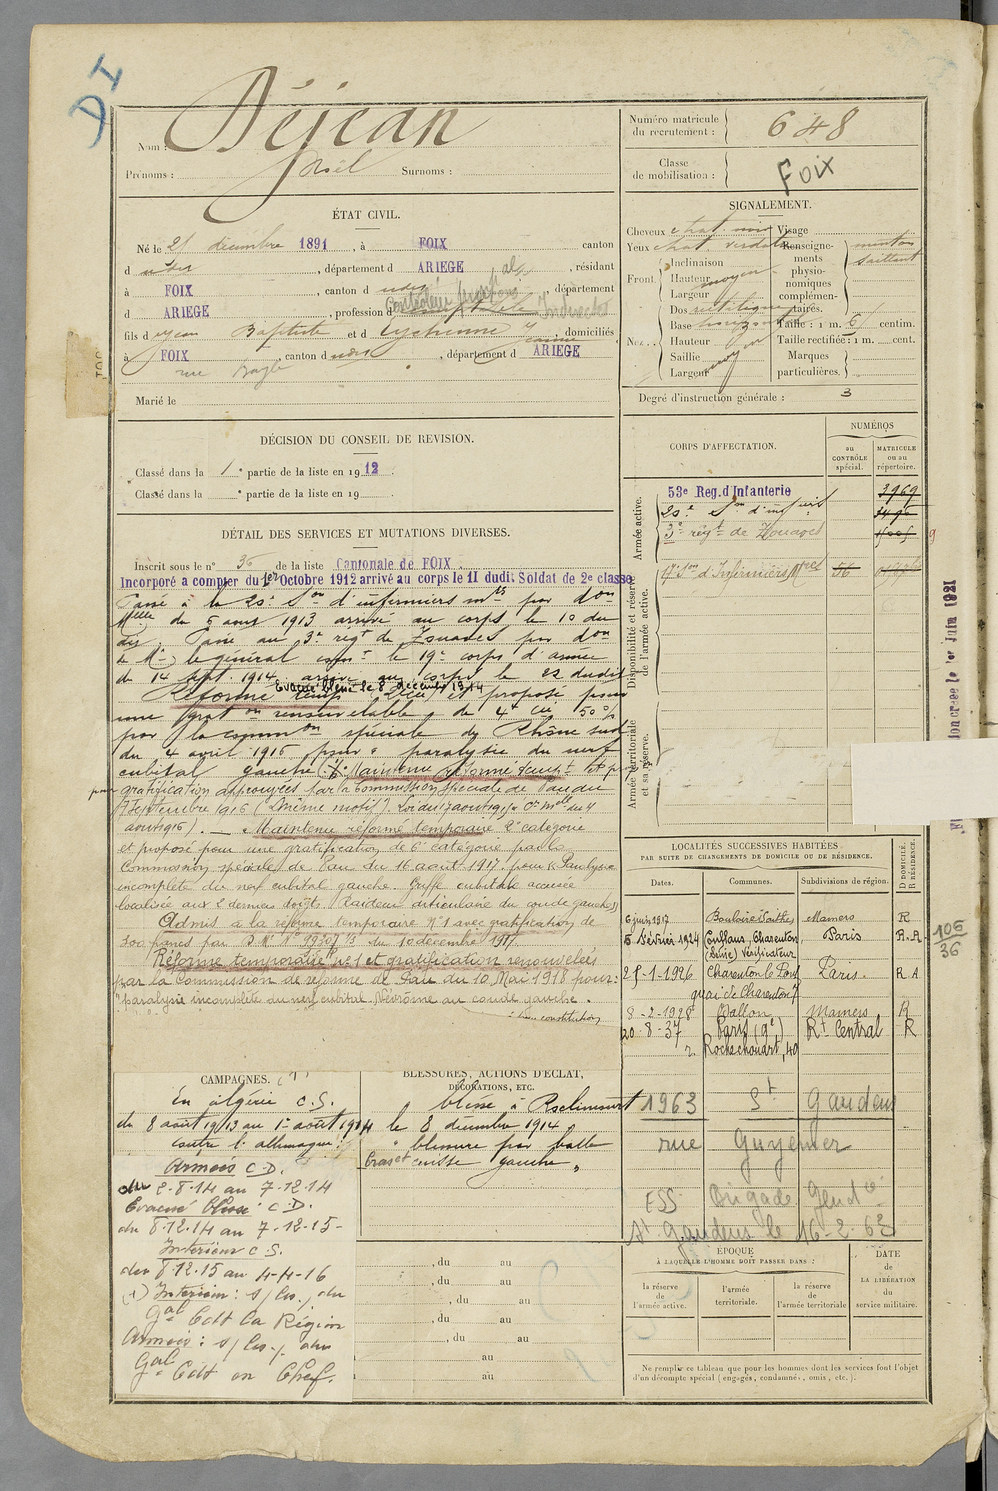 DI
Nom : Déjean
Prénoms : Noël Surnoms :
Numéro matricule du recrutement : 648
Classe de mobilisation : Foix
ÉTAT CIVIL.
Né le 21 décembre 1891, à FOIX canton
d udit, département d ARIEGE, résidant
à FOIX, canton d udit, département
d ARIEGE, profession d Contrôleur Indirectes
fils d Jean Baptiste et d, domiciliés
à FOIX, canton d udit, département d ARIEGE
rue Bayle
Marié le
SIGNALEMENT.
Cheveux chat noir Visage
Yeux chat verdâtre Renseignements physionomiques complémentaires. menton saillant
Front. Inclinaison
Hauteur moyen
Largeur
Nez. Dos rectiligne
Base horizontal Taille : 1 m. 61 centim.
Hauteur Taille rectifiée : 1 m. cent.
Saillie moyen Marques
Largeur particulières.
Degré d'instruction générale : 3
DÉCISION DU CONSEIL DE REVISION.
Classé dans la 1e partie de la liste en 1912.
Classé dans la e partie de la liste en 19
DÉTAIL DES SERVICES ET MUTATIONS DIVERSES.
Inscrit sous le n° 36 de la liste Cantonale de FOIX.
Incorporé à compter du 1er Octobre 1912 arrivé au corps le 11 dudit Soldat de 2e classe
Passé à la 20e Son d'infirmiers mres par don
Melle du 5 août 1913 arrivé au corps le 10 du
dit. Passé au 3e regt de Zouaves par don
de Mr le général comt le 19e corps d'armée
du 14 sept. 1914 arrivé au corps le 22 dudit
Evacué blessé le 8 décembre 1914
Réformé temp. et proposé pour
une graton renouvelable de 4e cie 50%
par la common spéciale du Rhône sud
du 4 avril 1916 pour "paralysie du nerf
cubital gauche". Maintenu réformé tempt et prop.
pour gratification approuvées par la Commission Spéciale de Pau du
7 Septembre 1916 (même motif) Loi du 17 août 1915 Cre melle du 4
août 1916). — Maintenu réformé temporaire 2e catégorie
et proposé pour une gratification de 6e catégorie par la
Commission spéciale de Pau du 16 août 1917. pour "Paralysie
incomplète du nerf cubital gauche. Griffe cubitale accusée
localisée aux 2 derniers doigts (Raideur articulaire du coude gauche)
Admis à la réforme temporaire N°1 avec gratification de
300 francs par D. M. N° 19307/3 du 10 décembre 1917.
Réforme temporaire n°1 et gratification renouvelées
par la Commission de réforme de Pau du 10 Mai 1918 pour:
"paralysie incomplète du nerf cubital. Névrome au coude gauche.
: bon constitution
CORPS D'AFFECTATION.
NUMÉROS
au CONTRÔLE spécial. MATRICULE ou au répertoire.
Armée active.
53e Reg. d'Infanterie 3969
20e Son d'infirs 3496
3e régt de Zouaves
9
Disponibilité et réserve de l'armée active.
17e Son d'Infirmiers Mres 56
Armée territoriale et sa réserve.
LOCALITÉS SUCCESSIVES HABITÉES
PAR SUITE DE CHANGEMENTS DE DOMICILE OU DE RÉSIDENCE.
Dates. Communes. Subdivisions de région. D DOMICILE. R RÉSIDENCE.
6 juin 1917 Bouloire (Sarthe) Mamers R
15 Février 1924 Conflans, Charenton (Seine) Vérificateur Paris R.A
28-1-1926 Charenton le Pont Paris. R A
quai de Charenton 7
8-2-1928 Ballon Mamers R
20-8-37 Paris (9e) Rt Central R
r. Rochechouart, 40
1963 St Gaudens
rue Guynemer
ESS Brigade Gendie
St Gaudens le 16-2-63
106
36
1er Juin 1921
CAMPAGNES. (1)
En Algérie C.S.
du 8 août 1913 au 1er août 1914
contre l'allemagne :
Armées C.D.
du 2-8-14 au 7-12-14
Evacué blessé C.D.
du 8-12-14 au 7-12-15-
Intérieur C.S.
du 8-12-15 au 4-4-16
(1) Intérieur : du
Gal Cdt la Région
Armées : du
Gal Cdt en Chef.
BLESSURES, ACTIONS D'ÉCLAT, DÉCORATIONS, ETC.
blessé à Roclincourt
le 8 décembre 1914
" blessure par balle
bras et cuisse gauche "
, du au
, du au
, du au
, du au
, du au
au
au
ÉPOQUE
À LAQUELLE L'HOMME DOIT PASSER DANS :
la réserve de l'armée active. l'armée territoriale. la réserve de l'armée territoriale
DATE de LA LIBÉRATION du service militaire.
Ne remplir ce tableau que pour les hommes dont les services font l'objet
d'un décompte spécial (engagés, condamnés, omis, etc.).